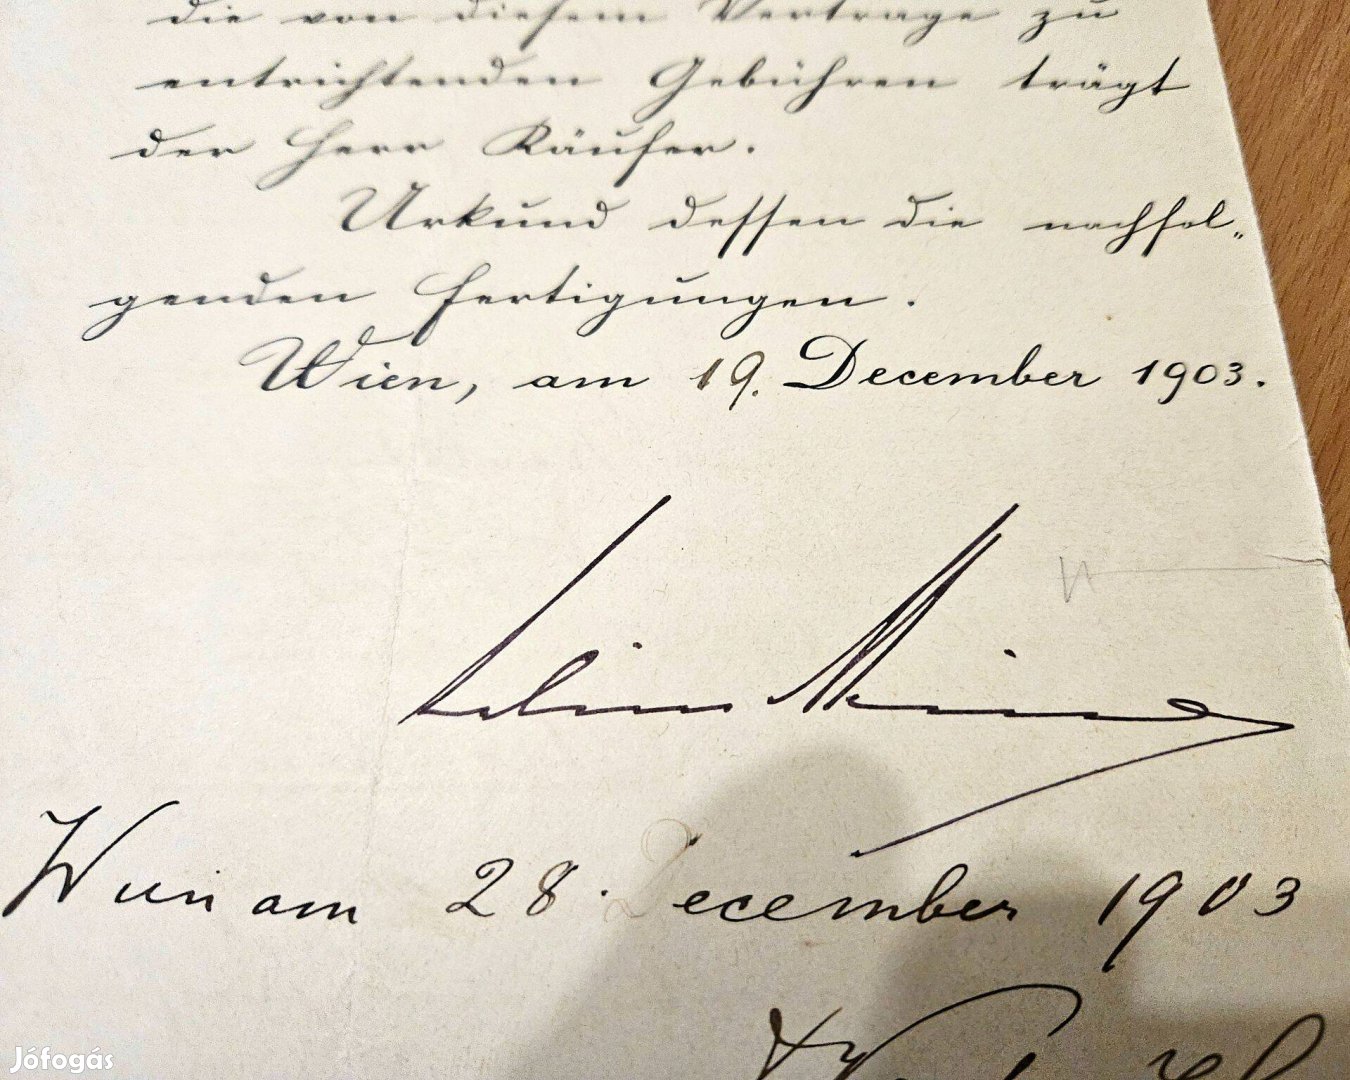 die von diesem Vertrage zu
entrichtenden Gebühren trägt
der Herr Käufer.
Urkund dessen die nachfol„
genden Fertigungen.
Wien, am 19. December 1903.
Wien am 28. December 1903
Jófogás